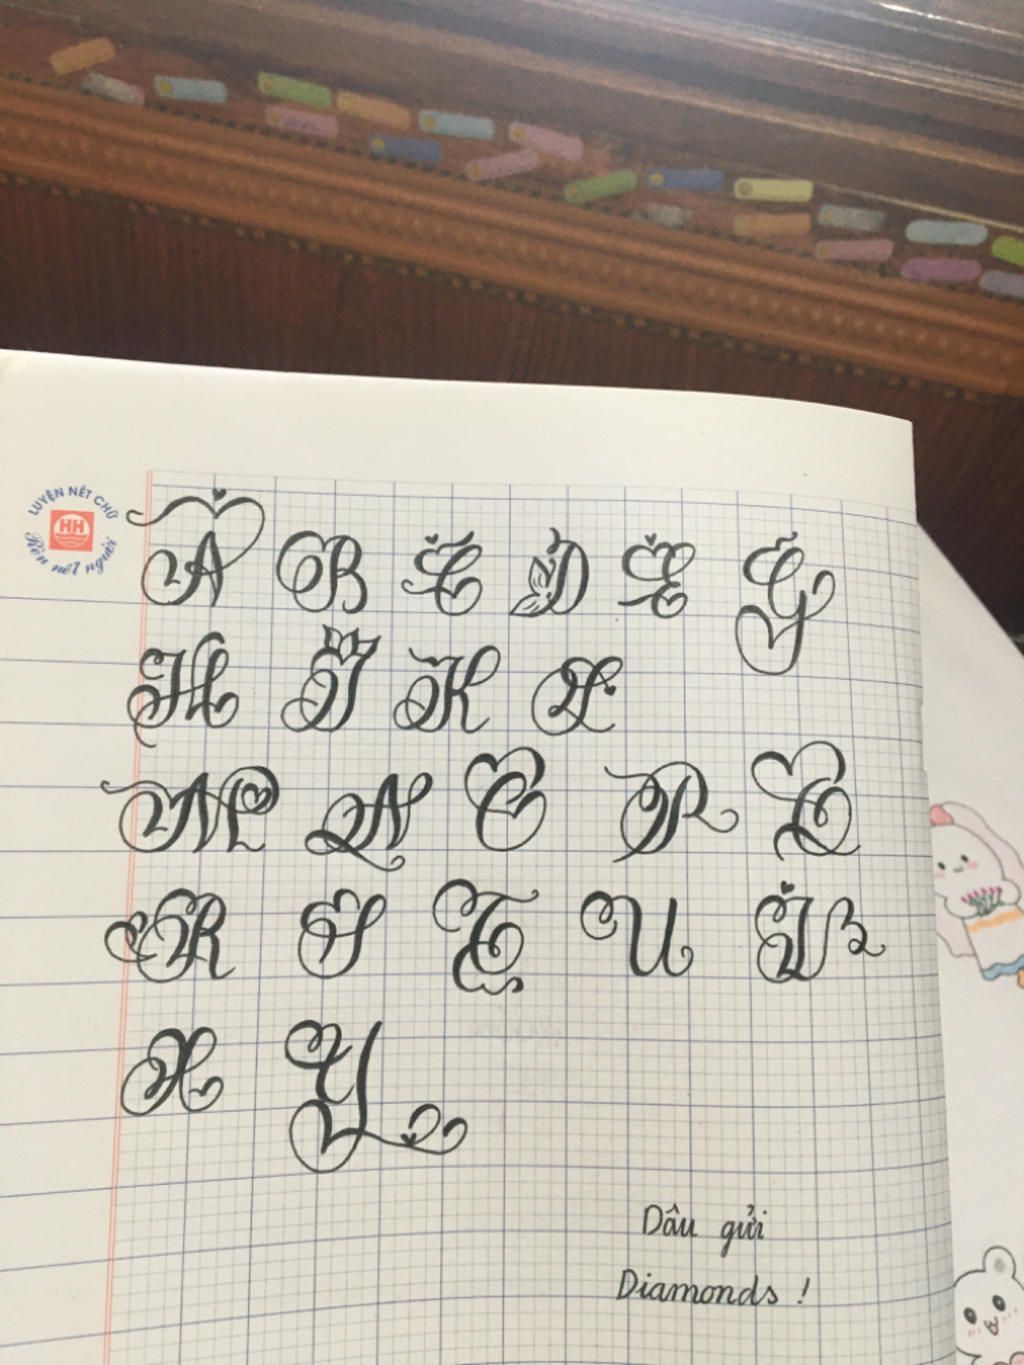 LUYỆN NÉT CHỮ
HH
Rèn nết người
A B C D E G
H I K L
M N O P Q
R S T U V
X Y
Dâu gửi
Diamonds !